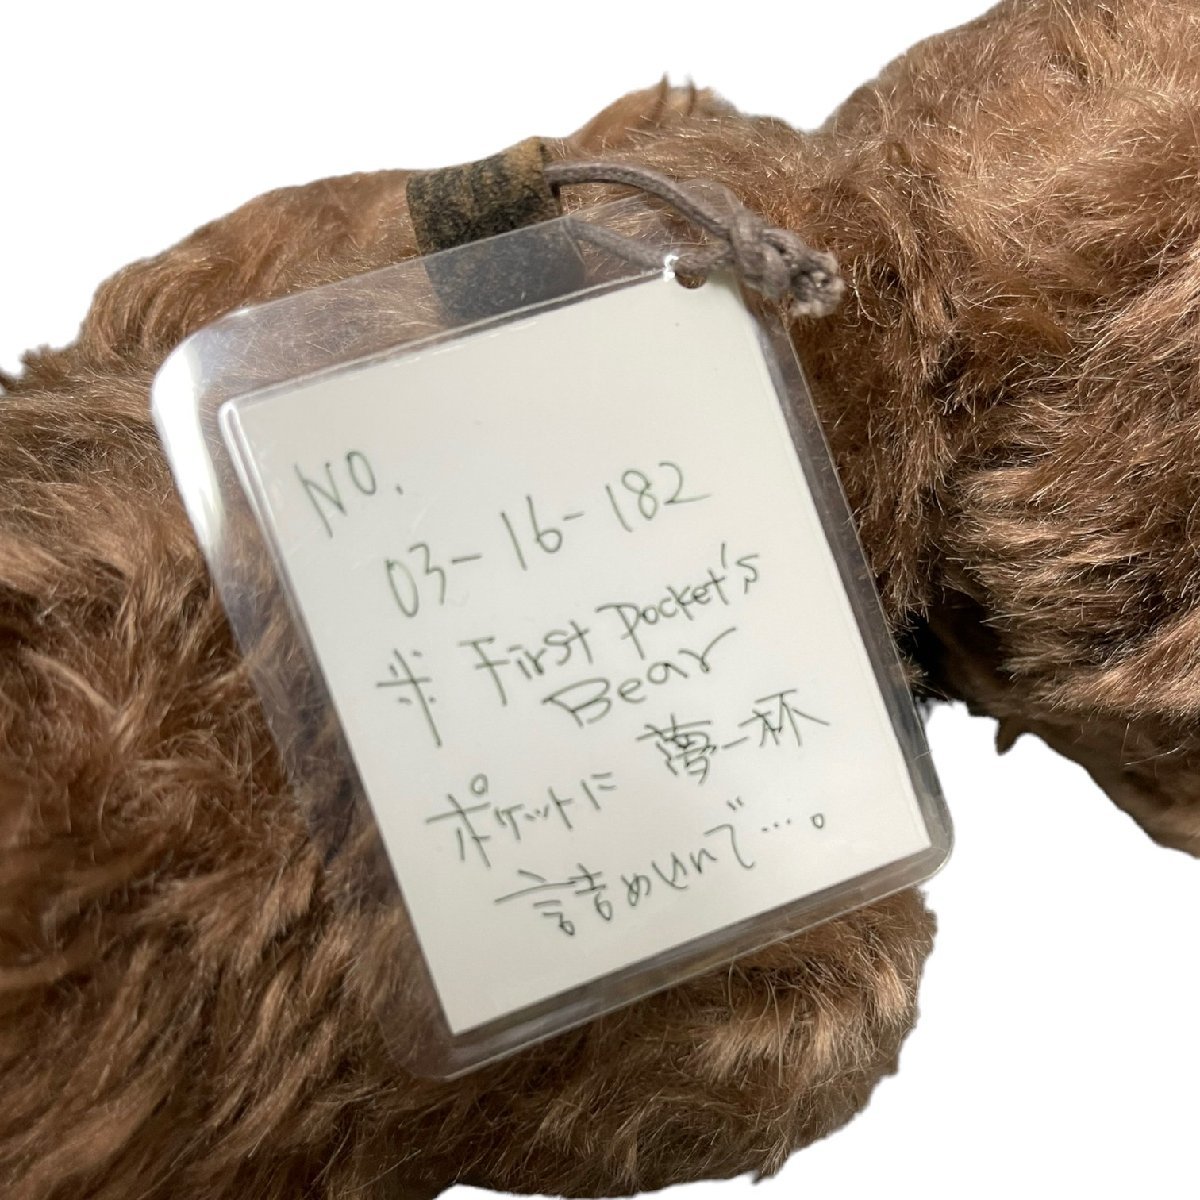 NO.
03-16-182
※ First Pocket's
Bear
ポケットに 夢一杯
詰めいれて…。